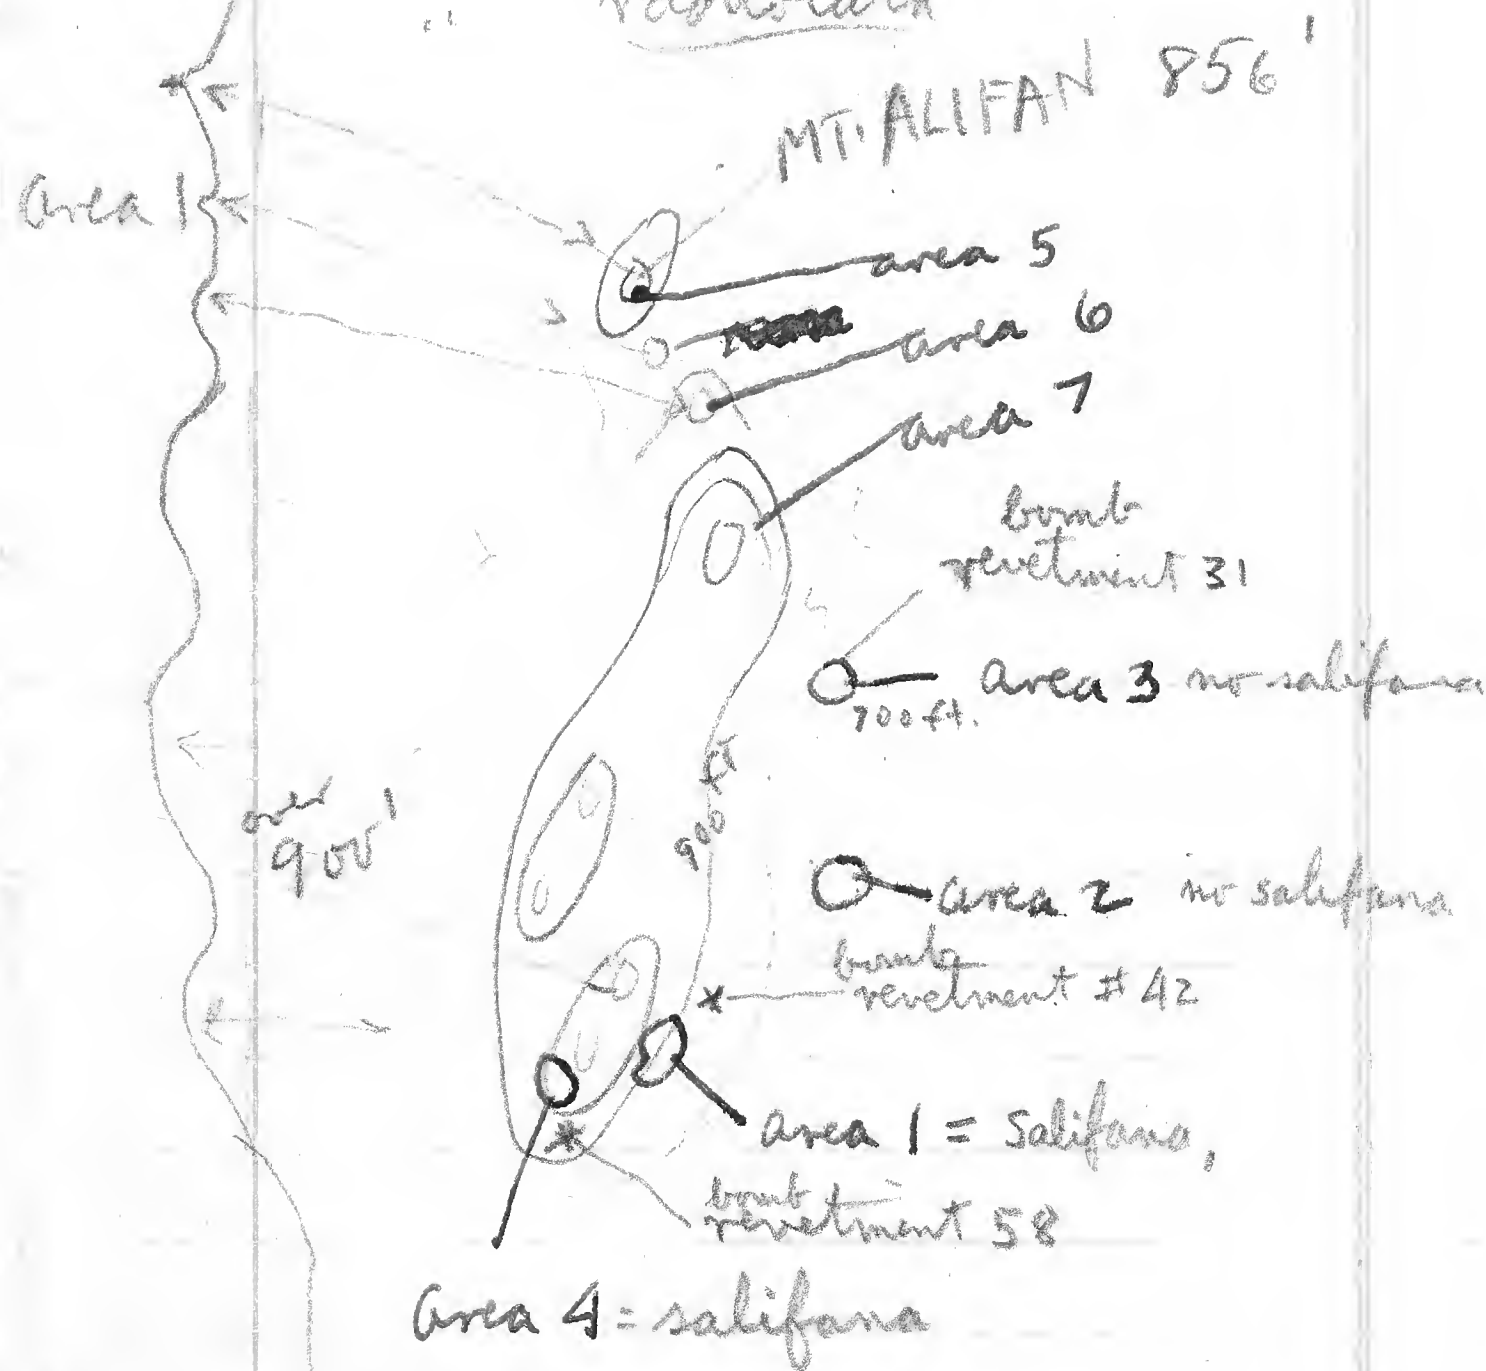 MT. ALIFAN 856'
area 1
area 5
area 6
area 7
bomb
revetment 31
area 3 no salifana
700 ft.
900 ft
over
900'
area 2 no salifana
bomb
revetment # 42
area 1 = salifana,
bomb
revetment 58
area 4 = salifana